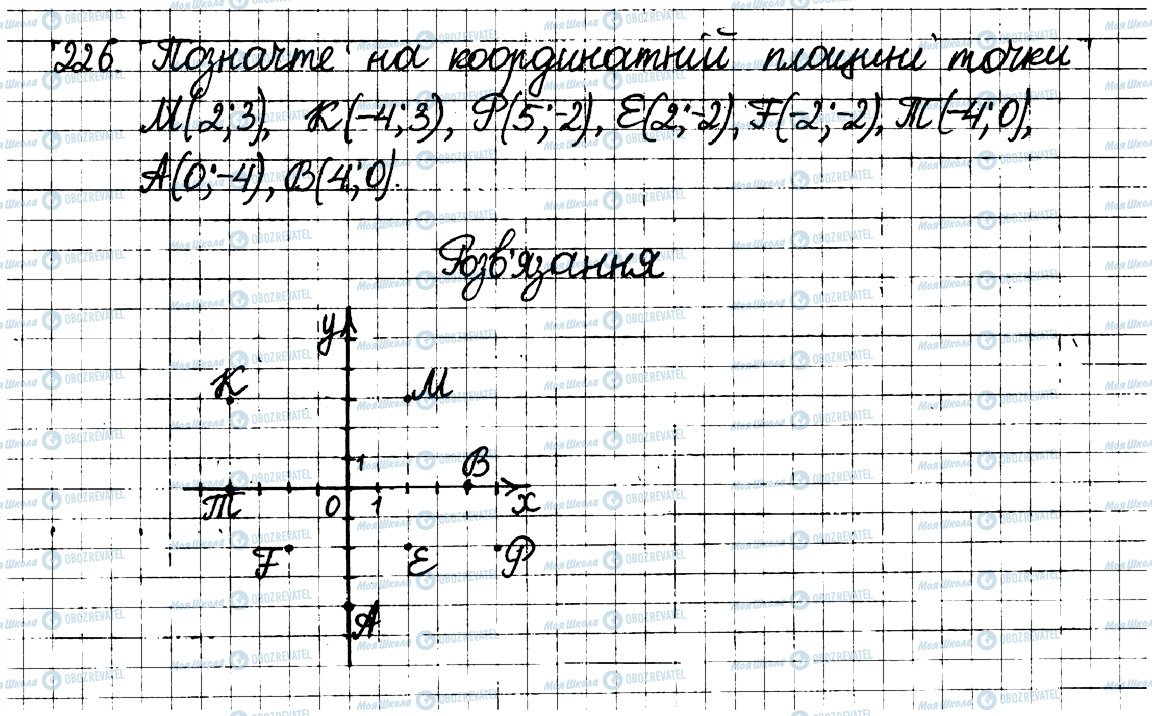 226 Позначте на координатній площині точки
M(2;3), K(-4;3), P(5;-2), E(2;-2), F(-2;-2), T(-4;0),
A(0;-4), B(4;0).
Розв'язання
y
K M
1 B
T 0 1 x
F E P
A
Моя Школа OBOZREVATEL